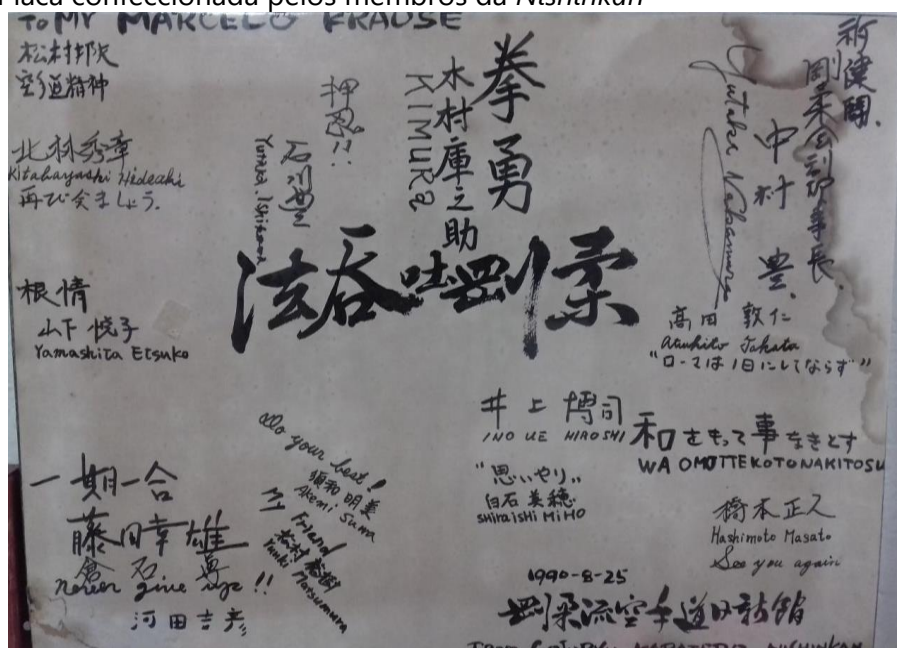 Placa confeccionada pelos membros da Nishinkan
TO MY MARCELO KRAUSE
松村邦欣
空手道精神
北林秀章
Kitabayashi Hideaki
再び会きましょう.
根情
山下悦子
Yamashita Etsuko
押忍!!
Yutaka Ishikawa
拳勇
木村庫之助
KIMURA
祈健闘.
剛柔会副理事長.
中村豊.
Yutaka Nakamura
法吞吐剛柔
高田敦仁
Atsuhito Takata
"ローマは1日にしてならず"
井上博司
INOUE HIROSHI
和をもって事なきとす
WA OMOTTEKOTONAKITOSU
"思いやり"
白石美穂
SHIRAISHI MIHO
橋本正人
Hashimoto Masato
See you again
Do your best!
須和明美
Akemi Suwa
My Friend
Yuuki Matsumura
一期一合
藤田幸雄
倉石勇
never give up!!
河田吉彦
1990-8-25
剛柔流空手道日新館